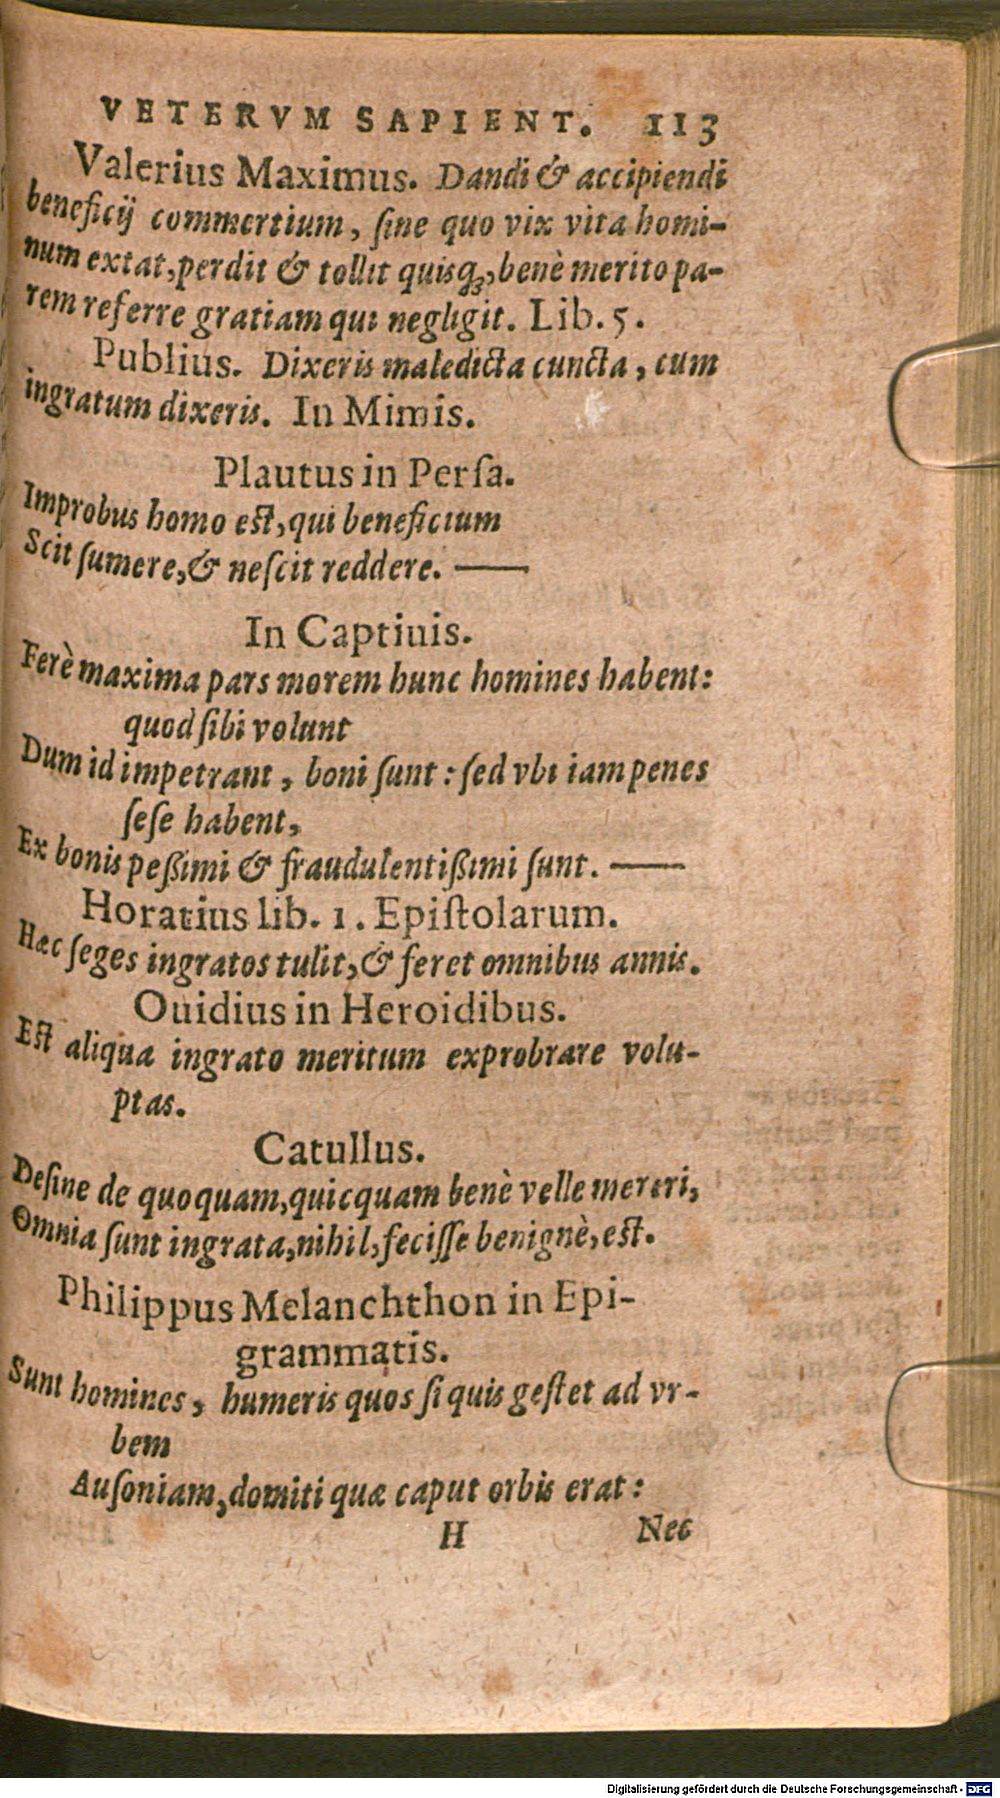 VETERVM SAPIENT. 113
Valerius Maximus. Dandi & accipiendi
beneficij commertium, ſine quo vix vita homi-
num extat, perdit & tollit quisq;, benè merito pa-
rem referre gratiam qui negligit. Lib. 5.
Publius. Dixeris maledicta cuncta, cum
ingratum dixeris. In Mimis.
Plautus in Perſa.
Improbus homo est, qui beneficium
Scit ſumere, & neſcit reddere. ——
In Captiuis.
Ferè maxima pars morem hunc homines habent:
quod ſibi volunt
Dum id impetrant, boni ſunt: ſed vbi iam penes
ſeſe habent,
Ex bonis peßimi & fraudulentißimi ſunt. ——
Horatius lib. 1. Epiſtolarum.
Hæc ſeges ingratos tulit, & feret omnibus annis.
Ouidius in Heroidibus.
Est aliqua ingrato meritum exprobrare volu-
ptas.
Catullus.
Deſine de quoquam, quicquam benè velle mereri,
Omnia ſunt ingrata, nihil, feciſſe benignè, est.
Philippus Melanchthon in Epi-
grammatis.
Sunt homines, humeris quos ſi quis geſtet ad vr-
bem
Auſoniam, domiti quæ caput orbis erat:
H Nec
Digitalisierung gefördert durch die Deutsche Forschungsgemeinschaft - DFG